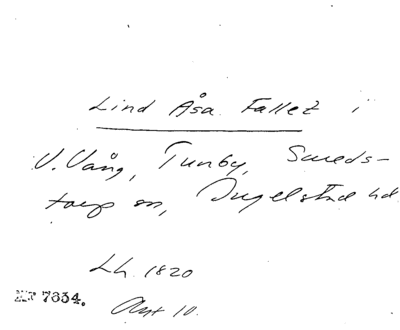 Lind Åsa Fallet i
V. Vång, Tunby, Smeds-
torp sn, Ingelstad hd.
Lh. 1820
MT 7634.
Akt 10.